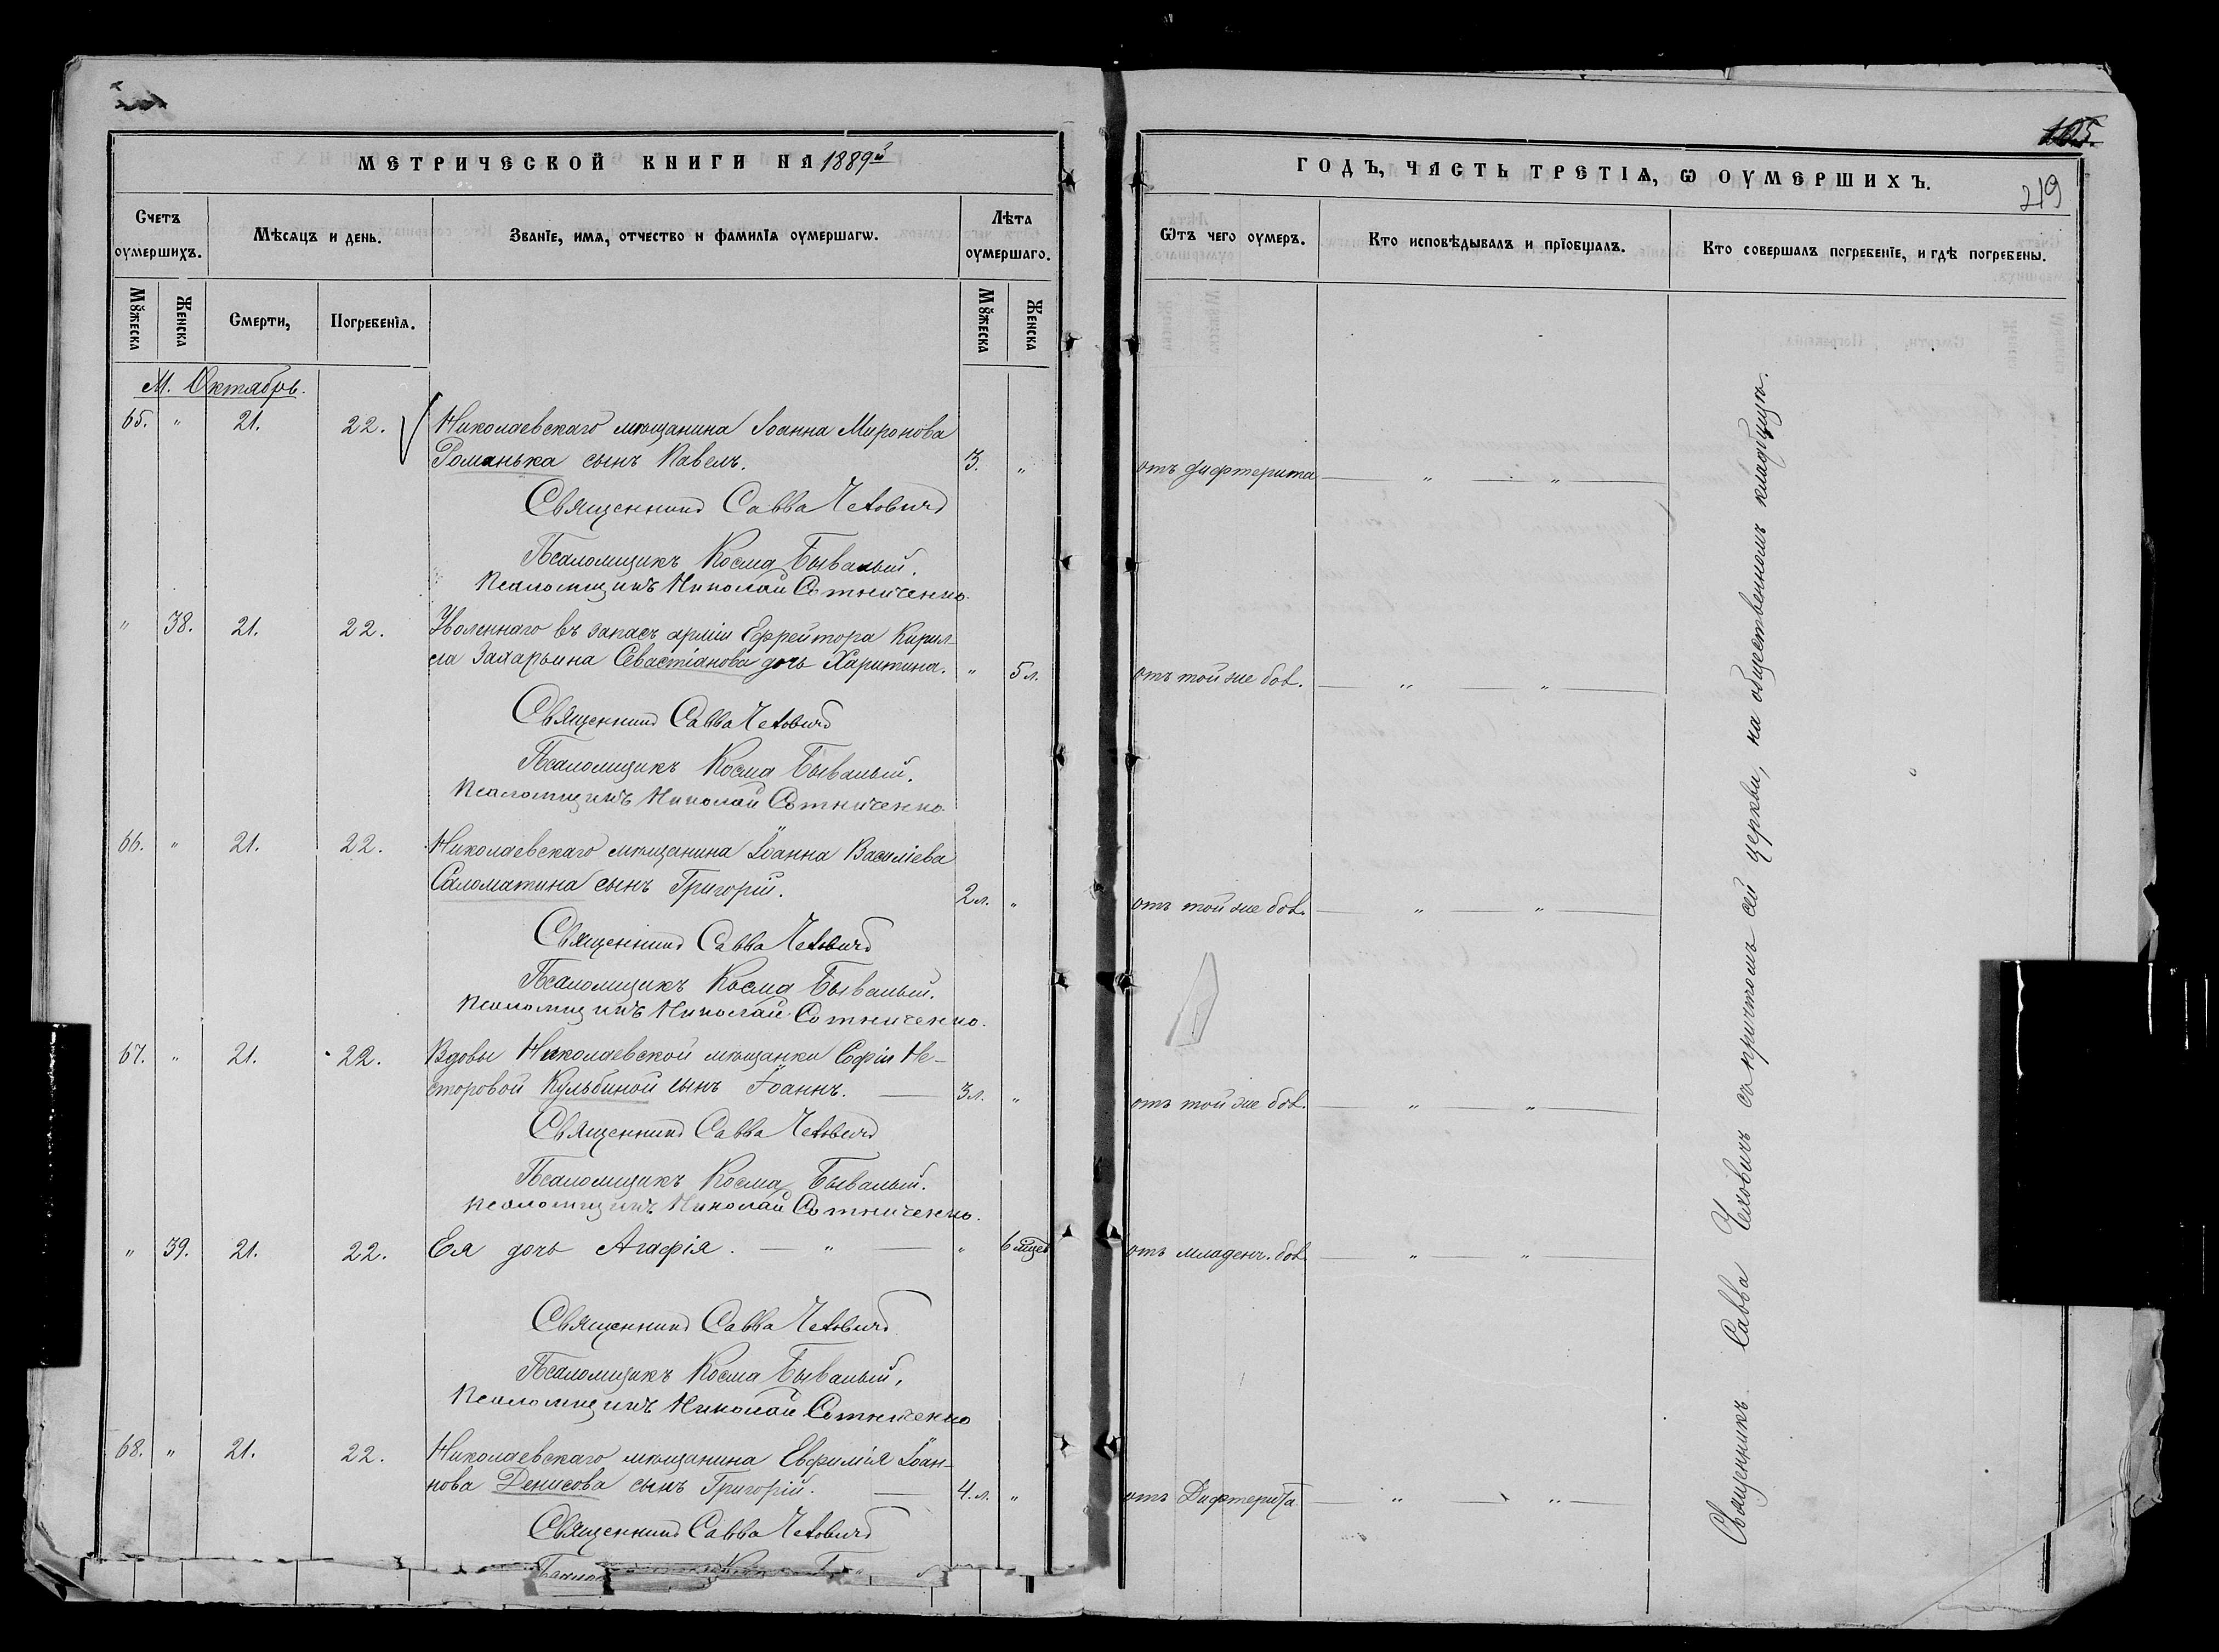 МЕТРИЧЕСКОЙ КНИГИ НА 1889й
Счетъ оумершихъ.
Мѣсяцъ и день.
Званіе, имя, отчество и фамилія оумершагѡ.
Лѣта оумершаго.
Мꙋжеска
Женска
Смерти,
Погребенія.
Мꙋжеска
Женска
М. Октябрь.
65. " 21. 22. Николаевскаго мѣщанина Іоанна Миронова
Романька сынъ Павелъ. 3. "
Священникъ Савва Чехович
Псаломщикъ Косма Бывалый.
Псаломщикъ Николай Сотниченко.
" 38. 21. 22. Уволеннаго въ запасъ арміи Ефрейтора Кирил-
ла Захарьина Севастіанова дочь Харитина. " 5 л.
Священникъ Савва Чехович
Псаломщикъ Косма Бывалый.
Псаломщикъ Николай Сотниченко.
66. " 21. 22. Николаевскаго мѣщанина Іоанна Василіева
Саломатина сынъ Григорій. 2 л. "
Священникъ Савва Чехович
Псаломщикъ Косма Бывалый.
Псаломщикъ Николай Сотниченко.
67. " 21. 22. Вдовы Николаевской мѣщанки Софіи Не-
сторовой Кульбиной сынъ Іоаннъ. 3 л. "
Священникъ Савва Чехович
Псаломщикъ Косма Бывалый.
Псаломщикъ Николай Сотниченко.
" 39. 21. 22. Ея дочь Агафія. " " 6 мцев
Священникъ Савва Чехович
Псаломщикъ Косма Бывалый.
Псаломщикъ Николай Сотниченко
68. " 21. 22. Николаевскаго мѣщанина Евфимія Іоан-
нова Денисова сынъ Григорій. 4. л. "
Священникъ Савва Чехович
105.
219
ГОДЪ, ЧАСТЬ ТРЕТІѦ, Ѡ ОУМЕРШИХЪ.
Ѿтъ чего оумеръ.
Кто исповѣдывалъ и прїобщалъ.
Кто совершалъ погребенїе, и гдѣ погребены.
отъ дифтерита " "
отъ той же бол. " "
отъ той же бол. " "
отъ той же бол. " "
отъ младенч. бол. " "
отъ Дифтерита " "
Священникъ Савва Чеховичъ съ причтомъ сей церкви, на общественномъ кладбищѣ.